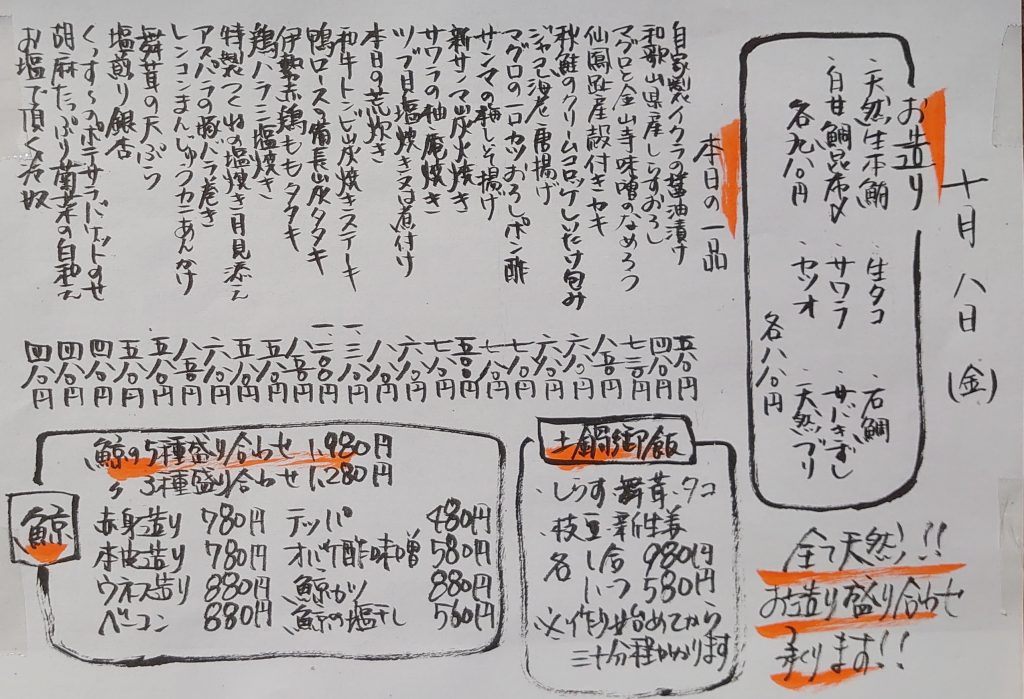 十月八日(金)
お造り
・天然生本鮪
・白甘鯛昆布〆
各九八〇円
・生タコ
・サワラ
・カツオ
・石鯛
・サバきずし
・天然ブリ
各八八〇円
全て天然!!
お造り盛り合わせ
承ります!!
本日の一品
自家製イクラの醤油漬け 五八〇円
和歌山県産しらすおろし 四八〇円
マグロと金山寺味噌のなめろう 七三〇円
仙鳳趾産殻付きカキ 八五〇円
秋鮭のクリームコロッケしいたけ包み 六八〇円
ジャコと海老唐揚げ 六八〇円
マグロの一口カツおろしポン酢 七八〇円
サンマの梅しそ揚げ 七八〇円
新サンマ炭火焼き 五〇〇円
サワラの柚庵焼き 七八〇円
ツブ貝塩焼き又は煮付け 六八〇円
本日の荒炊き 八八〇円
和牛トンビ炭焼きステーキ 一三八〇円
鴨ロースの備長炭タタキ 一二〇〇円
伊勢赤鶏ももタタキ 八五〇円
鶏ハラミ塩焼き 五八〇円
特製つくねの塩焼き月見添え 五八〇円
アスパラの豚バラ巻き 六八〇円
レンコンまんじゅうカニあんかけ 八五〇円
舞茸の天ぷら 五八〇円
塩煎り銀杏 五八〇円
くっすーのポテサラバケットのせ 四八〇円
胡麻たっぷり菊菜の白和え 四八〇円
お塩で頂く冷奴 四八〇円
土鍋御飯
・しらす・舞茸・タコ
・枝豆・新生姜
各 1合 980円
1/2 580円
※作り始めてから
三十分程かかります
鯨
鯨の5種盛り合わせ 1,980円
〃 3種盛り合わせ 1,280円
赤身造り 780円
本皮造り 780円
ウネス造り 880円
ベーコン 880円
テッパ 480円
オバケ酢味噌 580円
鯨カツ 880円
鯨の塩干し 560円